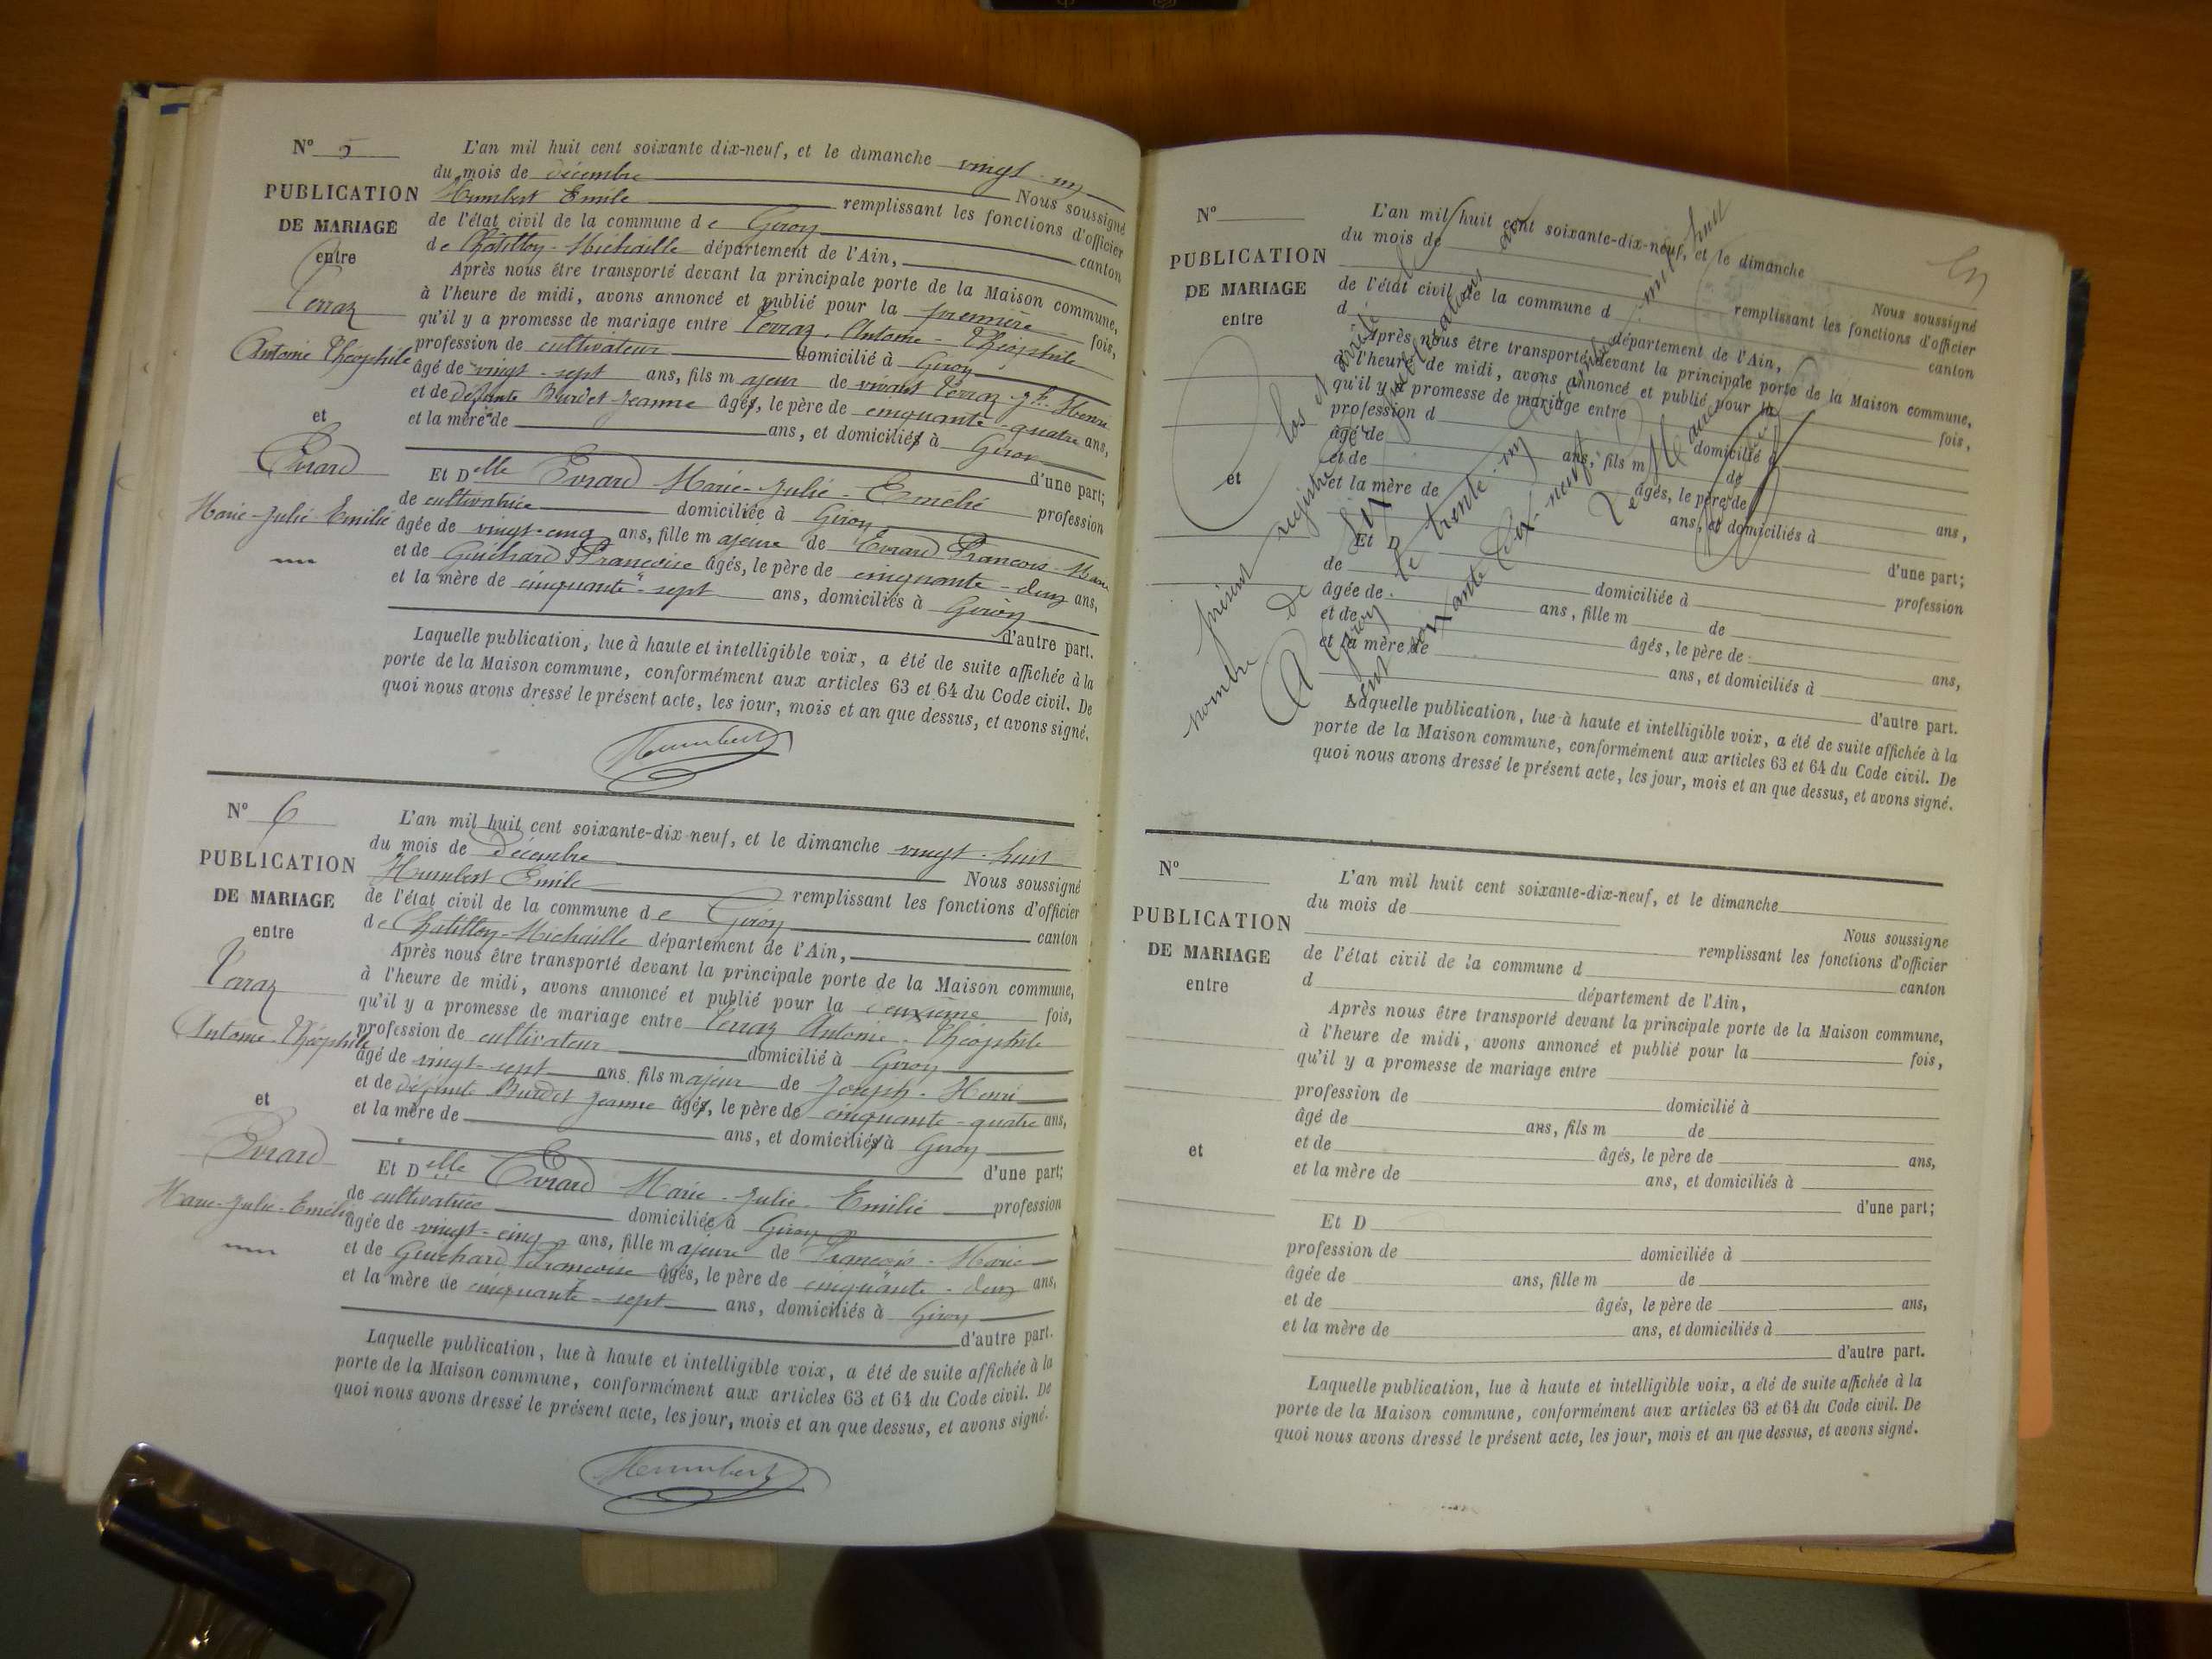 N° 5
PUBLICATION
DE MARIAGE
entre
Perraz
Antoine Théophile
et
Evrard
Marie-Julie-Emilie
L'an mil huit cent soixante dix-neuf, et le dimanche vingt-un
du mois de décembre Nous soussigné
Humbert Emile remplissant les fonctions d'officier
de l'état civil de la commune de Giron canton
de Châtillon-Michaille département de l'Ain,
Après nous être transporté devant la principale porte de la Maison commune,
à l'heure de midi, avons annoncé et publié pour la première fois,
qu'il y a promesse de mariage entre Perraz, Antoine-Théophile
profession de cultivateur domicilié à Giron
âgé de vingt-sept ans, fils majeur de vivant Perraz Jh Henri
et de défunte Burdet Jeanne âgés, le père de cinquante-quatre ans,
et la mère de ans, et domiciliés à Giron
d'une part;
Et Delle Evrard Marie-Julie-Emelie profession
de cultivatrice domiciliée à Giron
âgée de vingt-cinq ans, fille majeure de Evrard François-Marie
et de Guichard Françoise âgés, le père de cinquante-deux ans,
et la mère de cinquante-sept ans, domiciliés à Giron
d'autre part.
Laquelle publication, lue à haute et intelligible voix, a été de suite affichée à la
porte de la Maison commune, conformément aux articles 63 et 64 du Code civil. De
quoi nous avons dressé le présent acte, les jour, mois et an que dessus, et avons signé.
Humbert
N° 6
PUBLICATION
DE MARIAGE
entre
Perraz
Antoine-Théophile
et
Evrard
Marie-Julie-Emélie
L'an mil huit cent soixante-dix-neuf, et le dimanche vingt-huit
du mois de Décembre Nous soussigné
Humbert Emile remplissant les fonctions d'officier
de l'état civil de la commune de Giron canton
de Chatillon-Michaille département de l'Ain,
Après nous être transporté devant la principale porte de la Maison commune,
à l'heure de midi, avons annoncé et publié pour la deuxième fois,
qu'il y a promesse de mariage entre Perraz Antoine-Théophile
profession de cultivateur domicilié à Giron
âgé de vingt-sept ans, fils majeur de Joseph-Henri
et de défunte Burdet Jeanne âgés, le père de cinquante-quatre ans,
et la mère de ans, et domiciliés à Giron
d'une part;
Et Delle Evrard Marie-Julie-Emilie profession
de cultivatrice domiciliée à Giron
âgée de vingt-cinq ans, fille majeure de François-Marie
et de Guichard Françoise âgés, le père de cinquante-deux ans,
et la mère de cinquante-sept ans, domiciliés à Giron
d'autre part.
Laquelle publication, lue à haute et intelligible voix, a été de suite affichée à la
porte de la Maison commune, conformément aux articles 63 et 64 du Code civil. De
quoi nous avons dressé le présent acte, les jour, mois et an que dessus, et avons signé.
Humbert
N°
PUBLICATION
DE MARIAGE
entre
et
L'an mil huit cent soixante-dix-neuf, et le dimanche
du mois de Nous soussigné
remplissant les fonctions d'officier
de l'état civil de la commune d canton
d département de l'Ain,
Après nous être transporté devant la principale porte de la Maison commune,
à l'heure de midi, avons annoncé et publié pour la fois,
qu'il y a promesse de mariage entre
profession d domicilié à
âgé de ans, fils m de
et de âgés, le père de ans,
et la mère de ans, et domiciliés à
d'une part;
Et D profession
de domiciliée à
âgée de ans, fille m de
et de âgés, le père de ans,
et la mère de ans, et domiciliés à
d'autre part.
Laquelle publication, lue à haute et intelligible voix, a été de suite affichée à la
porte de la Maison commune, conformément aux articles 63 et 64 du Code civil. De
quoi nous avons dressé le présent acte, les jour, mois et an que dessus, et avons signé.
Clos et arrêté le
présent registre au
nombre de six publications
A Giron le trente un Décembre mil huit
cent soixante dix-neuf
Le Maire
N°
PUBLICATION
DE MARIAGE
entre
et
L'an mil huit cent soixante-dix-neuf, et le dimanche
du mois de Nous soussigne
remplissant les fonctions d'officier
de l'état civil de la commune d canton
d département de l'Ain,
Après nous être transporté devant la principale porte de la Maison commune,
à l'heure de midi, avons annoncé et publié pour la fois,
qu'il y a promesse de mariage entre
profession de domicilié à
âgé de ans, fils m de
et de âgés, le père de ans,
et la mère de ans, et domiciliés à
d'une part;
Et D
profession de domiciliée à
âgée de ans, fille m de
et de âgés, le père de ans,
et la mère de ans, et domiciliés à
d'autre part.
Laquelle publication, lue à haute et intelligible voix, a été de suite affichée à la
porte de la Maison commune, conformément aux articles 63 et 64 du Code civil. De
quoi nous avons dressé le présent acte, les jour, mois et an que dessus, et avons signé.